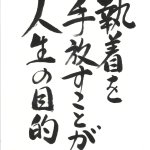 執着を
手放すことが
人生の目的